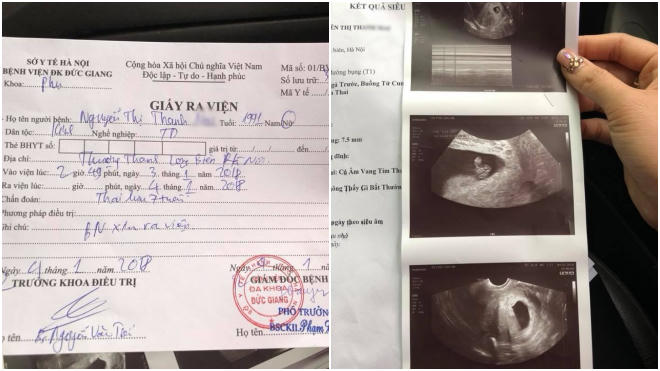 SỞ Y TẾ HÀ NỘI
BỆNH VIỆN ĐK ĐỨC GIANG
Khoa: Phụ
Cộng hòa Xã hội Chủ nghĩa Việt Nam
Độc lập - Tự do - Hạnh phúc
Mã số: 01/B
Số lưu trữ:
Mã Y tế
GIẤY RA VIỆN
Họ tên người bệnh: Nguyễn Thị Thanh Tuổi: 1991 Nam/Nữ
Dân tộc: Kinh Nghề nghiệp: TD
Thẻ BHYT số: giá trị từ: đến
Địa chỉ: Thượng Thanh Long Biên HN
Vào viện lúc: 2 giờ 49 phút, ngày 3 tháng 1 năm 2018
Ra viện lúc: giờ phút, ngày 4 tháng 1 năm 2018
Chẩn đoán: Thai lưu 7 tuần
Phương pháp điều trị:
Ghi chú: BN xin ra viện
Ngày 4 tháng 1 năm 2018
TRƯỞNG KHOA ĐIỀU TRỊ
Họ tên
Ngày tháng 1
GIÁM ĐỐC BỆNH
ĐA KHOA
ĐỨC GIANG
PHÓ TRƯỞ
Họ tên: BSCKII. Phạm
KẾT QUẢ SIÊU
ỄN THỊ
Biên, Hà Nội
ường bụng (T1)
gã Trước, Buồng Tử Cun
Thai
ng: 7.5 mm
định:
i: Có Âm Vang Tim Tha
ông Thấy Gì Bất Thườ
ngày theo siêu âm